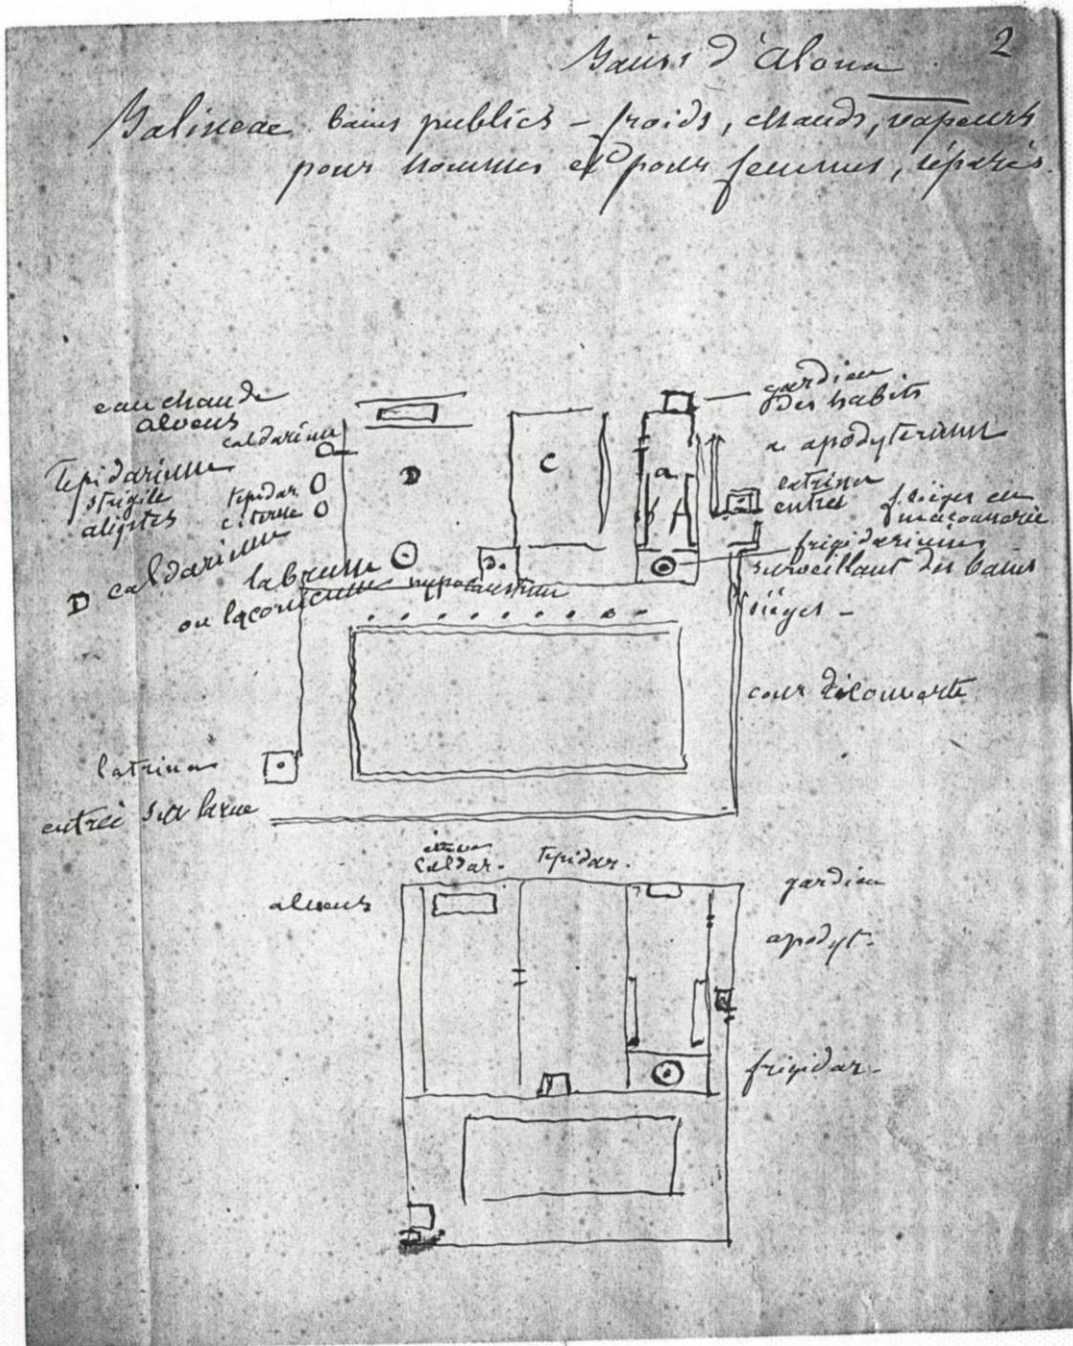 2
Bains d'Alona
Balineae bains publics – froids, chauds, vapeurs
pour hommes et pour femmes, séparés.
eau chaude
alveus
caldarium
Tepidarium
strigile
aliptes
tepidar
citerne
D caldarium
labrum
ou laconicum
hypocaustum
D
C
a
D.
gardien
des habits
a apodyterium
entrée
sièges en
maçonnerie
frigidarium
surveillant des bains
sièges –
cour découverte
latrina
entrée sur la rue
caldar.
tepidar.
alveus
gardien
apodyt.
frigidar.